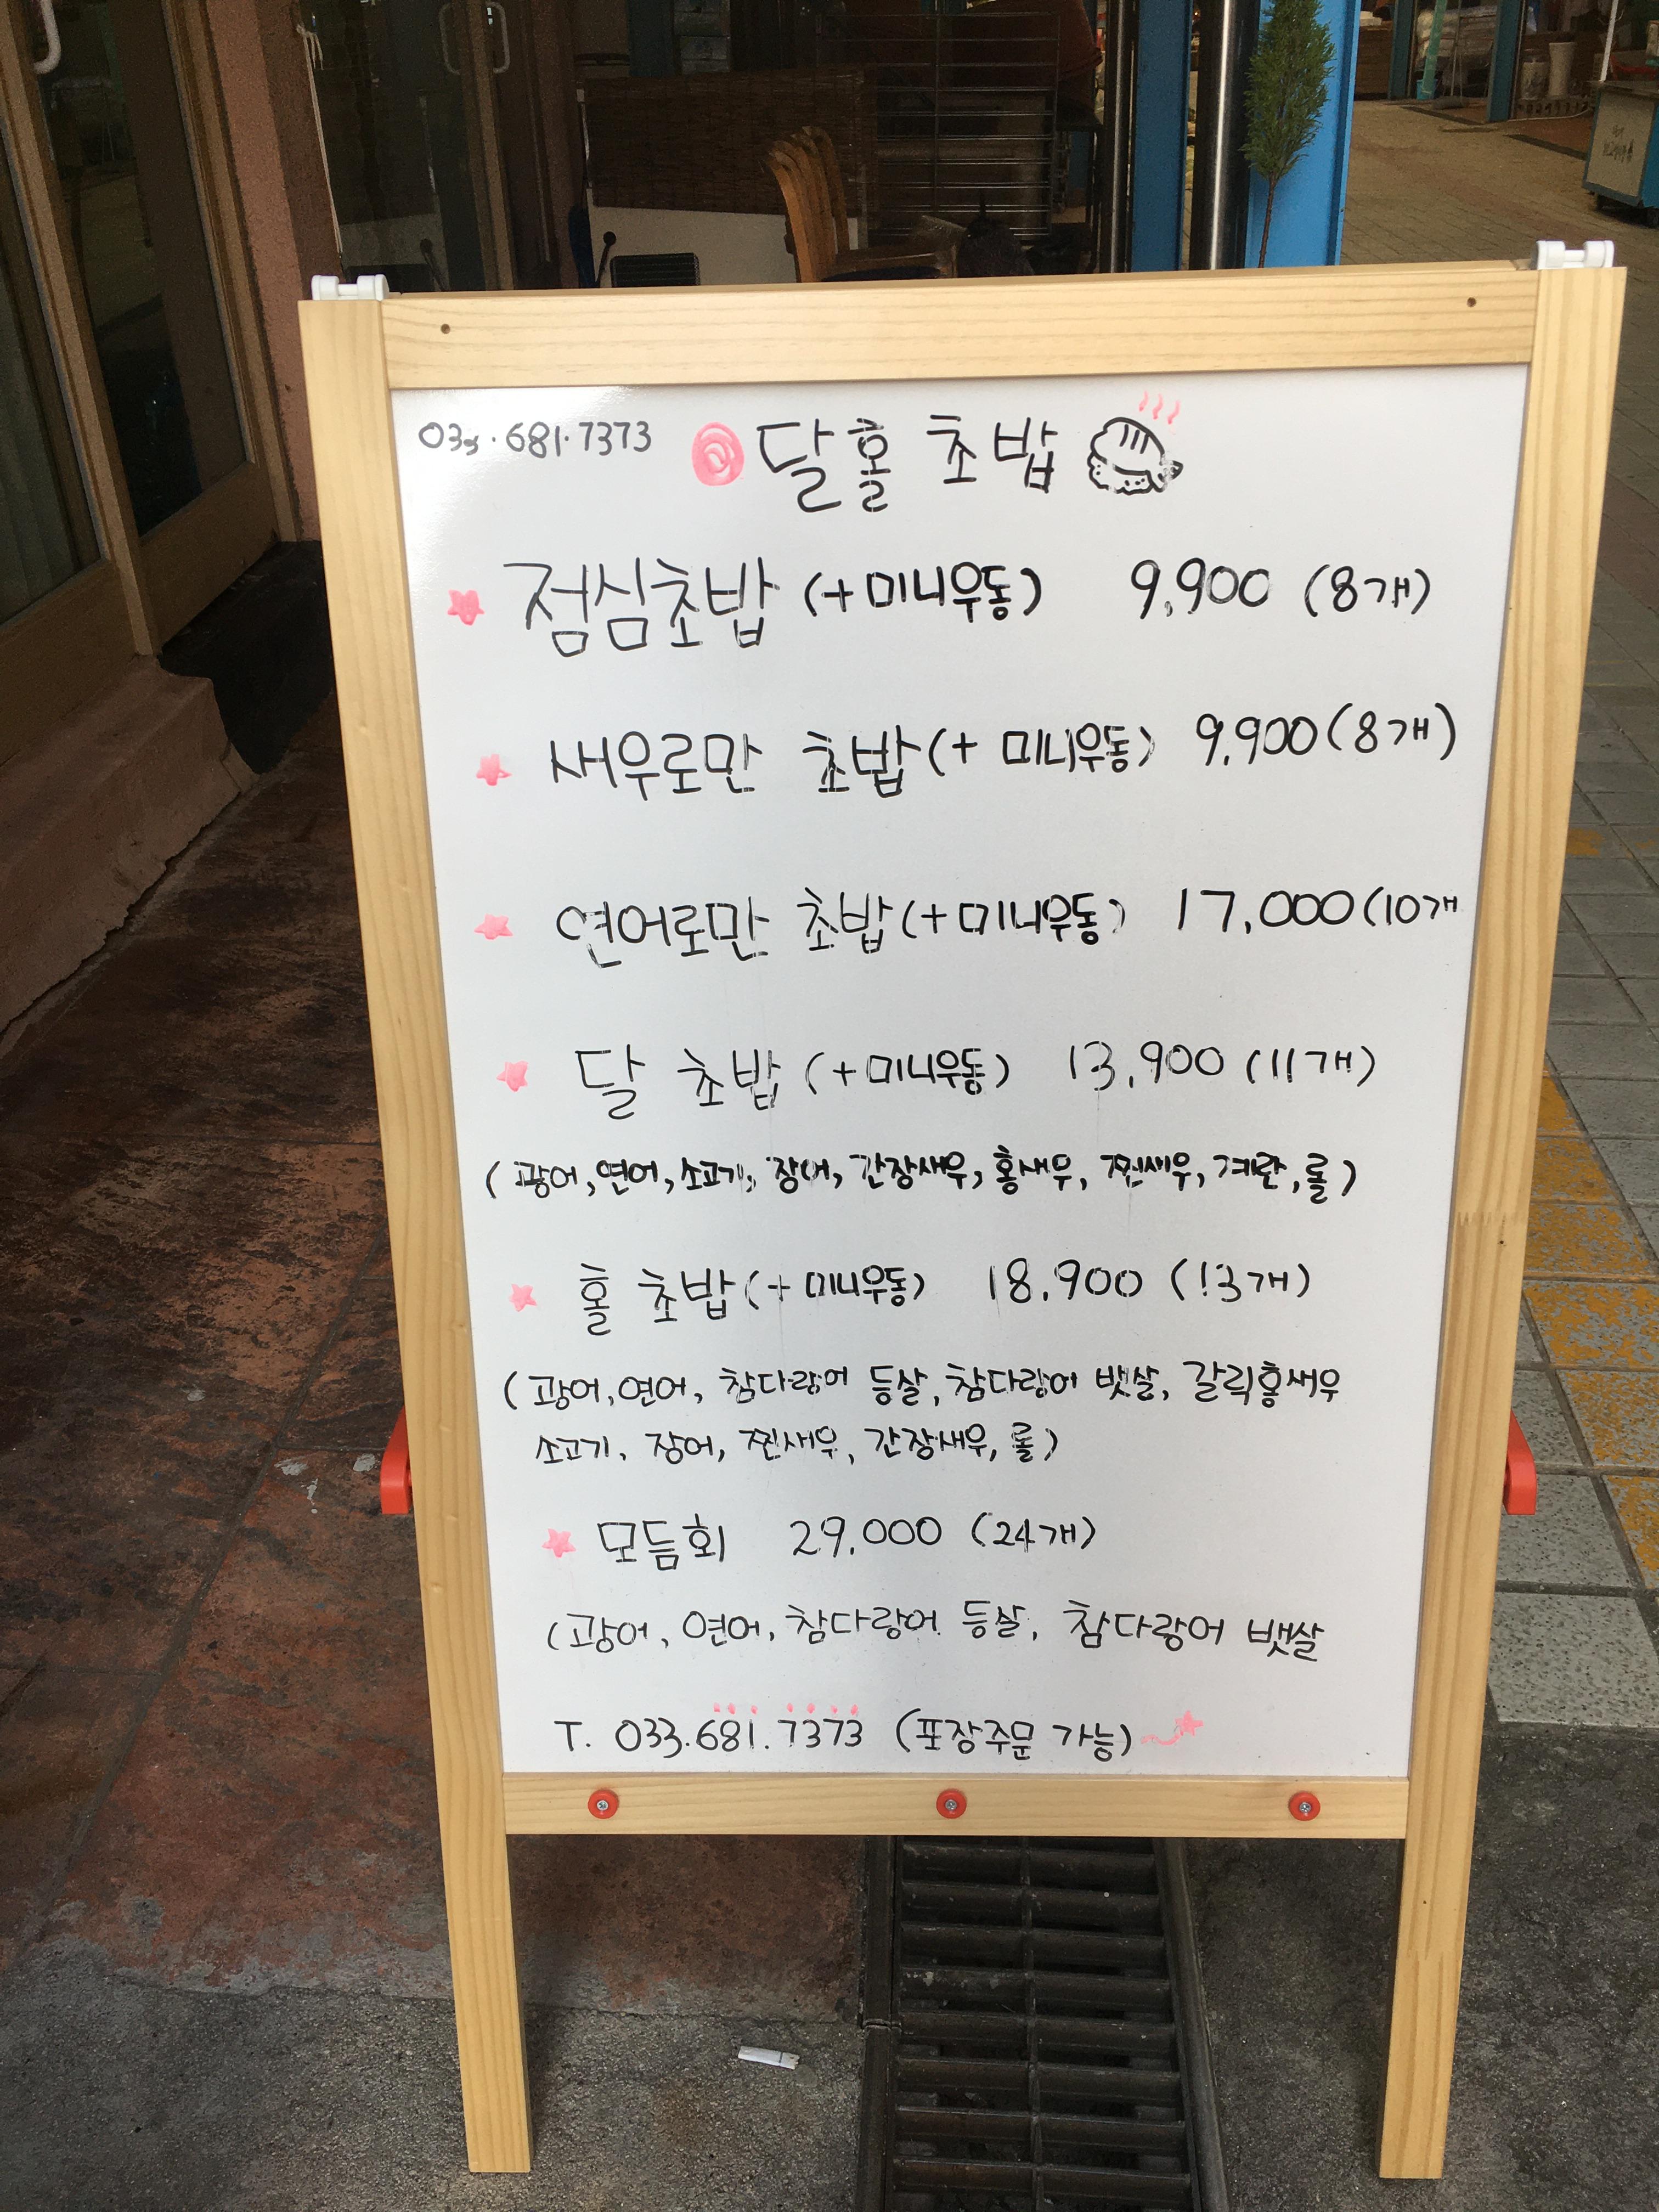 033.681.7373 달홀 초밥
점심초밥 (+미니우동) 9,900 (8개)
새우로만 초밥(+ 미니우동) 9,900(8개)
연어로만 초밥(+미니우동) 17,000(10개
달 초밥 (+미니우동) 13,900 (11개)
(광어, 연어, 소고기, 장어, 간장새우, 홍새우, 찐새우, 계란, 롤)
홀 초밥(+미니우동) 18.900 (13개)
(광어, 연어, 참다랑어 등살, 참다랑어 뱃살, 갈릭홍새우
소고기, 장어, 찐새우, 간장새우, 롤)
모듬회 29.000 (24개)
(광어, 연어, 참다랑어 등살, 참다랑어 뱃살
T. 033.681.7373 (포장주문 가능)